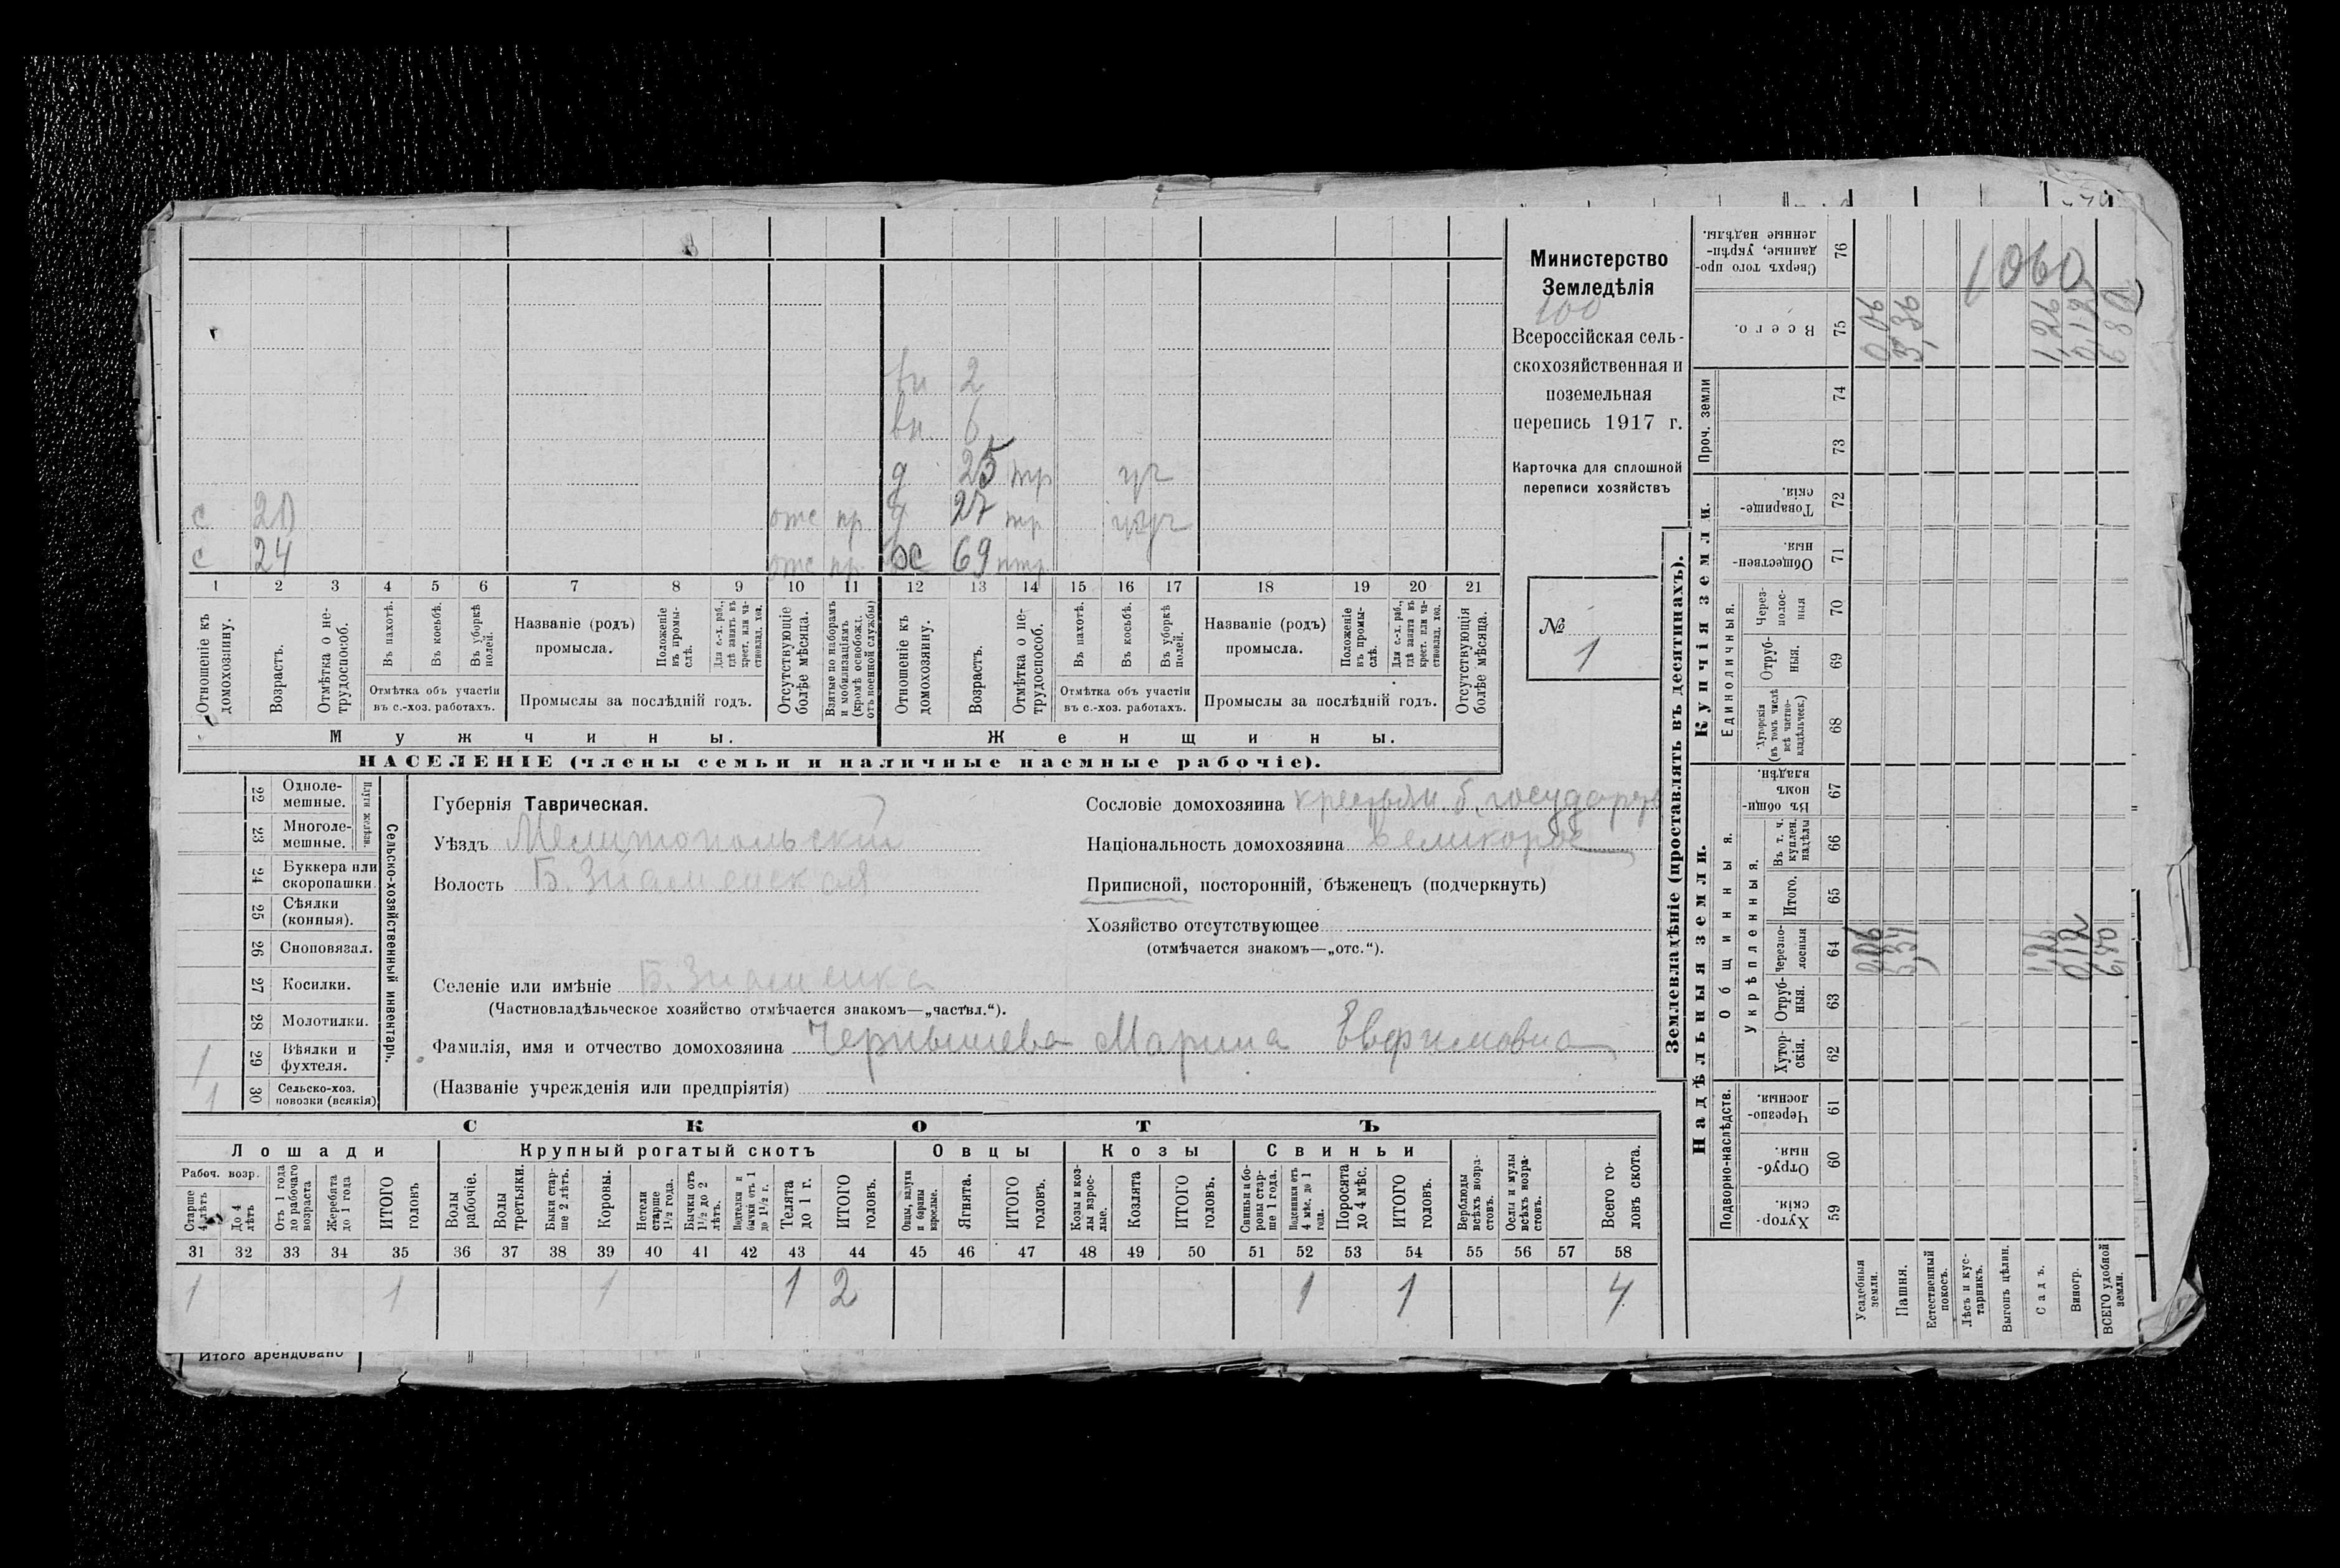 Министерство
Земледѣлія
100
Всероссійская сель-
скохозяйственная и
поземельная
перепись 1917 г.
Карточка для сплошной
переписи хозяйствъ
№
1
вн 2
вн. 6
д 25 тр уч
с 20 отс пр д 27 тр уч
с 24 отс пр х 69 нтр
1 2 3 4 5 6 7 8 9 10 11 12 13 14 15 16 17 18 19 20 21
Отношеніе къ домохозяину.
Возрастъ.
Отмѣтка о не-трудоспособ.
Въ пахотѣ.
Въ косьбѣ.
Въ уборкѣ полей.
Отмѣтка объ участіи
въ с.-хоз. работахъ.
Названіе (родъ)
промысла.
Положеніе въ промы-слѣ.
Для с.-х. раб., гдѣ занятъ въ крест. или ча-стновлад. хоз.
Промыслы за послѣдній годъ.
Отсутствующіе болѣе мѣсяца.
Взятые по наборамъ и мобилизаціямъ (кромѣ освобожд. отъ военной службы)
Отношеніе къ домохозяину.
Возрастъ.
Отмѣтка о не-трудоспособ.
Въ пахотѣ.
Въ косьбѣ.
Въ уборкѣ полей.
Отмѣтка объ участіи
въ с.-хоз. работахъ.
Названіе (родъ)
промысла.
Положеніе въ промы-слѣ.
Для с.-х. раб., гдѣ занята въ крест. или ча-стновлад. хоз.
Промыслы за послѣдній годъ.
Отсутствующія болѣе мѣсяца.
Мужчины.
Женщины.
НАСЕЛЕНІЕ (члены семьи и наличные наемные рабочіе).
22 Одноле-мешные.
23 Многоле-мешные.
Плуги желѣзн.
24 Буккера или скоропашки
25 Сѣялки (конныя).
26 Сноповязал.
27 Косилки.
28 Молотилки.
1 29 Вѣялки и фухтеля.
1 30 Сельско-хоз. повозки (всякія)
Сельско-хозяйственный инвентарь.
Губернія Таврическая.
Уѣздъ Мелитопольскій
Волость Б. Знаменская
Селеніе или имѣніе Б. Знаменка
(Частновладѣльческое хозяйство отмѣчается знакомъ—„частвл.“).
Фамилія, имя и отчество домохозяина Чернышева Марина Евфимовна
(Названіе учрежденія или предпріятія)
Сословіе домохозяина крестьян. б. государств
Національность домохозяина великорос
Приписной, посторонній, бѣженецъ (подчеркнуть)
Хозяйство отсутствующее
(отмѣчается знакомъ—„отс.“).
СКОТЪ
Лошади
Крупный рогатый скотъ
Овцы
Козы
Свиньи
Рабоч. возр.
Старше 4 лѣтъ
До 4 лѣтъ
Отъ 1 года до рабочаго возраста
Жеребята до 1 года
ИТОГО головъ
Волы рабочіе.
Волы третьяки.
Быки стар-ше 2 лѣтъ.
Коровы.
Нетели старше 1½ года.
Бычки отъ 1½ до 2 лѣтъ.
Подтелки и бычки отъ 1 до 1½ г.
Телята до 1 г.
ИТОГО головъ.
Овцы, валухи и бараны взрослые.
Ягнята.
ИТОГО головъ.
Козы и коз-лы взрос-лые.
Козлята
ИТОГО головъ.
Свиньи и бо-ровы стар-ше 1 года.
Подсвинки отъ 4 мѣс. до 1 года.
Поросята до 4 мѣс.
ИТОГО головъ.
Верблюды всѣхъ возра-стовъ.
Ослы и мулы всѣхъ возра-стовъ.
Всего го-ловъ скота.
31 32 33 34 35 36 37 38 39 40 41 42 43 44 45 46 47 48 49 50 51 52 53 54 55 56 57 58
1 1 1 1 2 1 1 4
Итого арендовано
Землевладѣніе (проставлять въ десятинахъ).
Надѣльныя земли.
Купчія земли.
Проч. земли
Подворно-наслѣдств.
Общинныя.
Укрѣпленныя.
Единоличныя.
59 Хутор-скія.
60 Отруб-ныя.
61 Черезпо-лосныя.
62 Хутор-скія.
63 Отруб-ныя.
64 Черезпо-лосныя
65 Итого.
66 Въ т. ч. куплен. надѣлы
67 Въ общи-номъ владѣн.
68 Хуторскія (въ томъ числѣ всѣ частно-владѣльческ.)
69 Отруб-ныя.
70 Через-полос-ныя
71 Обществен-ныя.
72 Товарище-скія.
73
74
75 Всего.
76 Сверхъ того про-данные, укрѣп-ленные надѣлы.
Усадебныя земли. 0,06 0,06
Пашня. 5,36
Естественный покосъ.
Лѣсъ и кус-тарникъ.
Выгонъ цѣлин.
Садъ. 1,26
Виногр. 0,12 0,12
ВСЕГО удобной земли.
1060